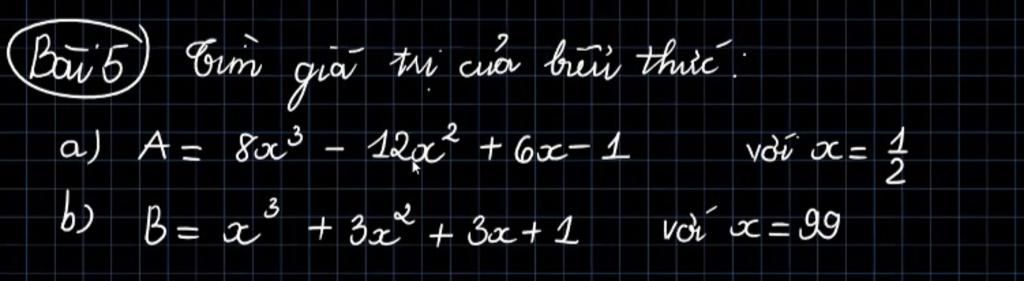 Bài 5 Tìm giá trị của biểu thức:
a) A = 8x³ - 12x² + 6x - 1 với x = 1/2
b) B = x³ + 3x² + 3x + 1 với x = 99